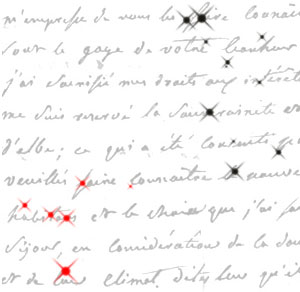 m'empresse de vous les faire connaître
sous le gage de votre bonheur
j'ai sacrifié mes droits aux intérêts
me suis reservé la souveraineté
d'albe; ce qui a été
veuillés faire connaitre
et le choix que j'ai fai
séjour, en considération de la dou
et de climat. Dites leur qu'il